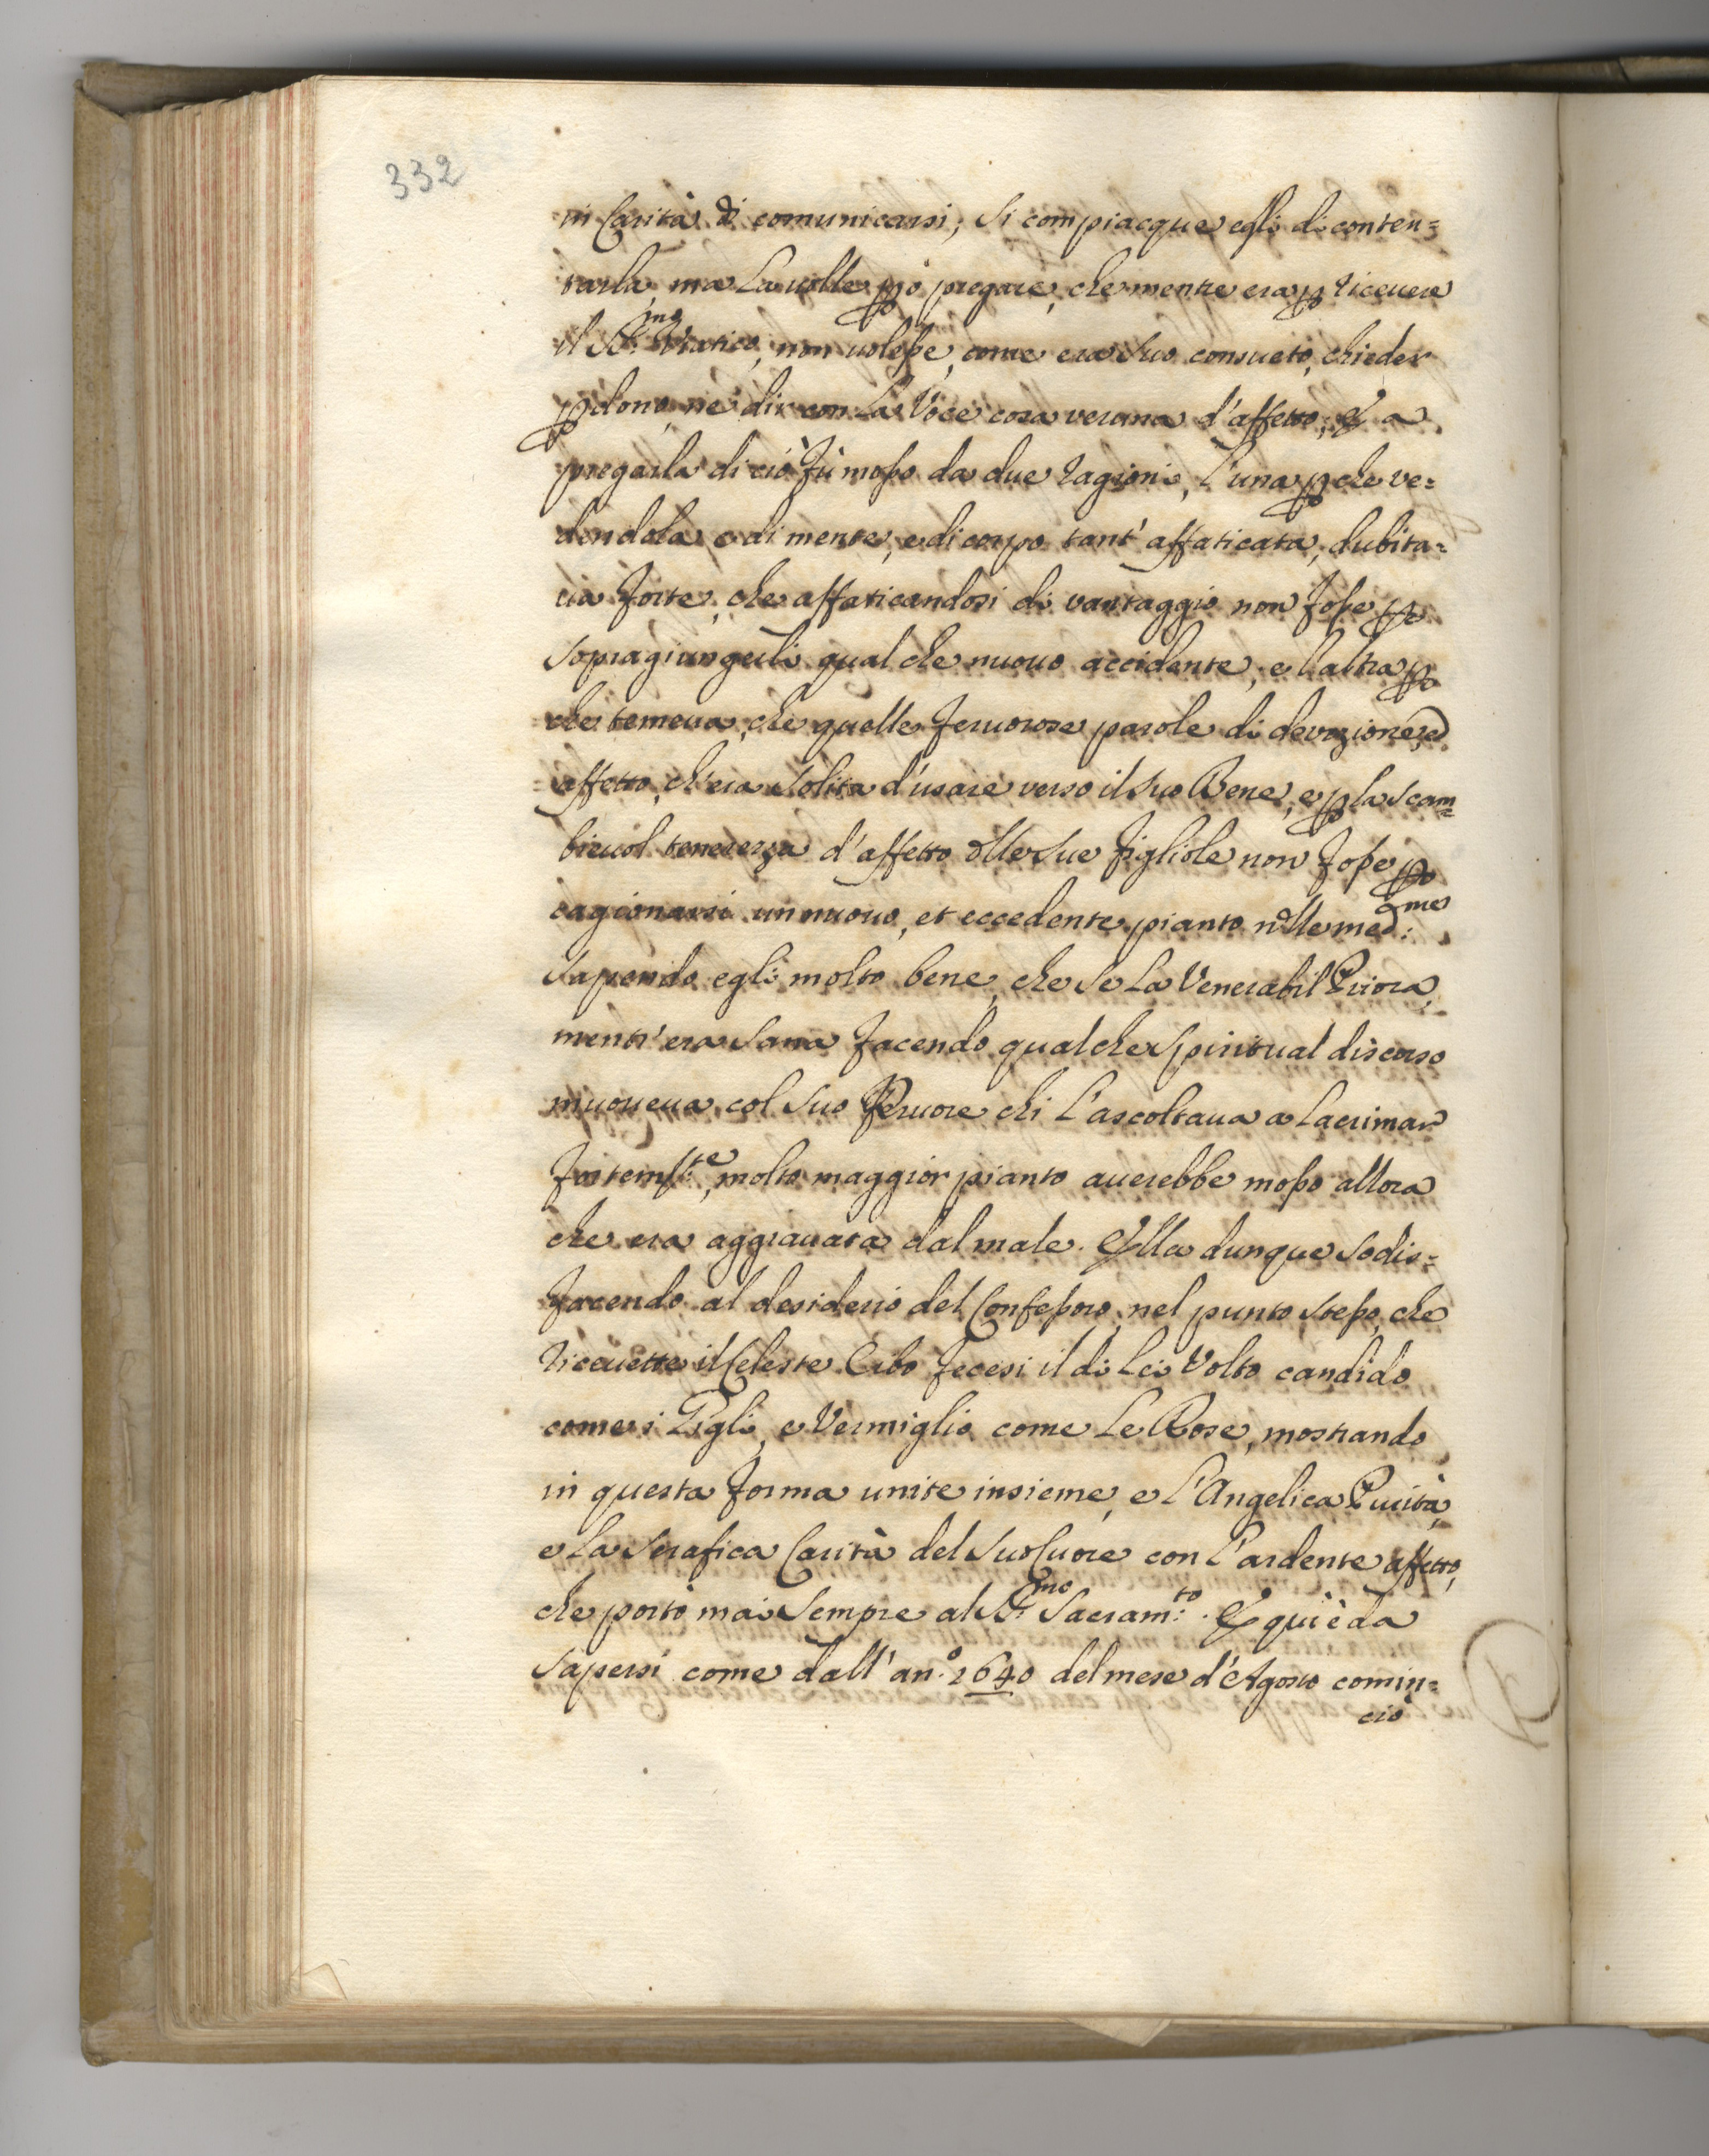 332
in Carità di comunicarsi; Si compiacque egli di conten=
tarla, ma La uolle ꝑò pregare, che mentre era ꝑ riceuere
il SS:mo Viatico, non uolesse, come era suo consueto, chieder
ꝑdono, ne dir con La Voce cosa veruna d'affetto; Et a
pregarla di ciò fù mosso da due ragioni, L'una ꝑche ve=
dendola e di mente, e di corpo tant' affaticata, dubita=
ua forte, che affaticandosi di vantaggio non fosse ꝑ
sopragiungerli qual che nuouo accidente, e l'altra ꝑ
che temeua, che quelle feruorose parole di devozione, ed
affetto, ch'era solita d'usare verso il suo Bene, e ꝑ la scam=
bieuol tenerezza d'affetto dlle sue figliole non fosse ꝑ
cagionarsi un nuouo, et eccedente pianto nlle med:me
Sapendo egli molto bene, che se La Venerabil Priora,
mentr' era sana facendo qualche spiritual discorso
muoueua col suo feruore chi L'ascoltaua a Lacrimar
fortemte:, molto maggior pianto auerebbe mosso allora
che era aggrauata dal male. Ella dunque sodis=
facendo al desiderio del Confessoro, nel punto stesso, che
riceuette il Celeste Cibo fecesi il di Lei Volto candido
come i Gigli, e Vermiglio come Le Rose, mostrando
in questa forma unite insieme, e L'Angelica Purità,
e La Serafica Carità del suo Cuore con L'ardente affetto,
che portò mai sempre al SS:mo Sacram:to. E qui è da
sapersi come dall' an:o 1640 del mese d'Agosto comin=
ciò